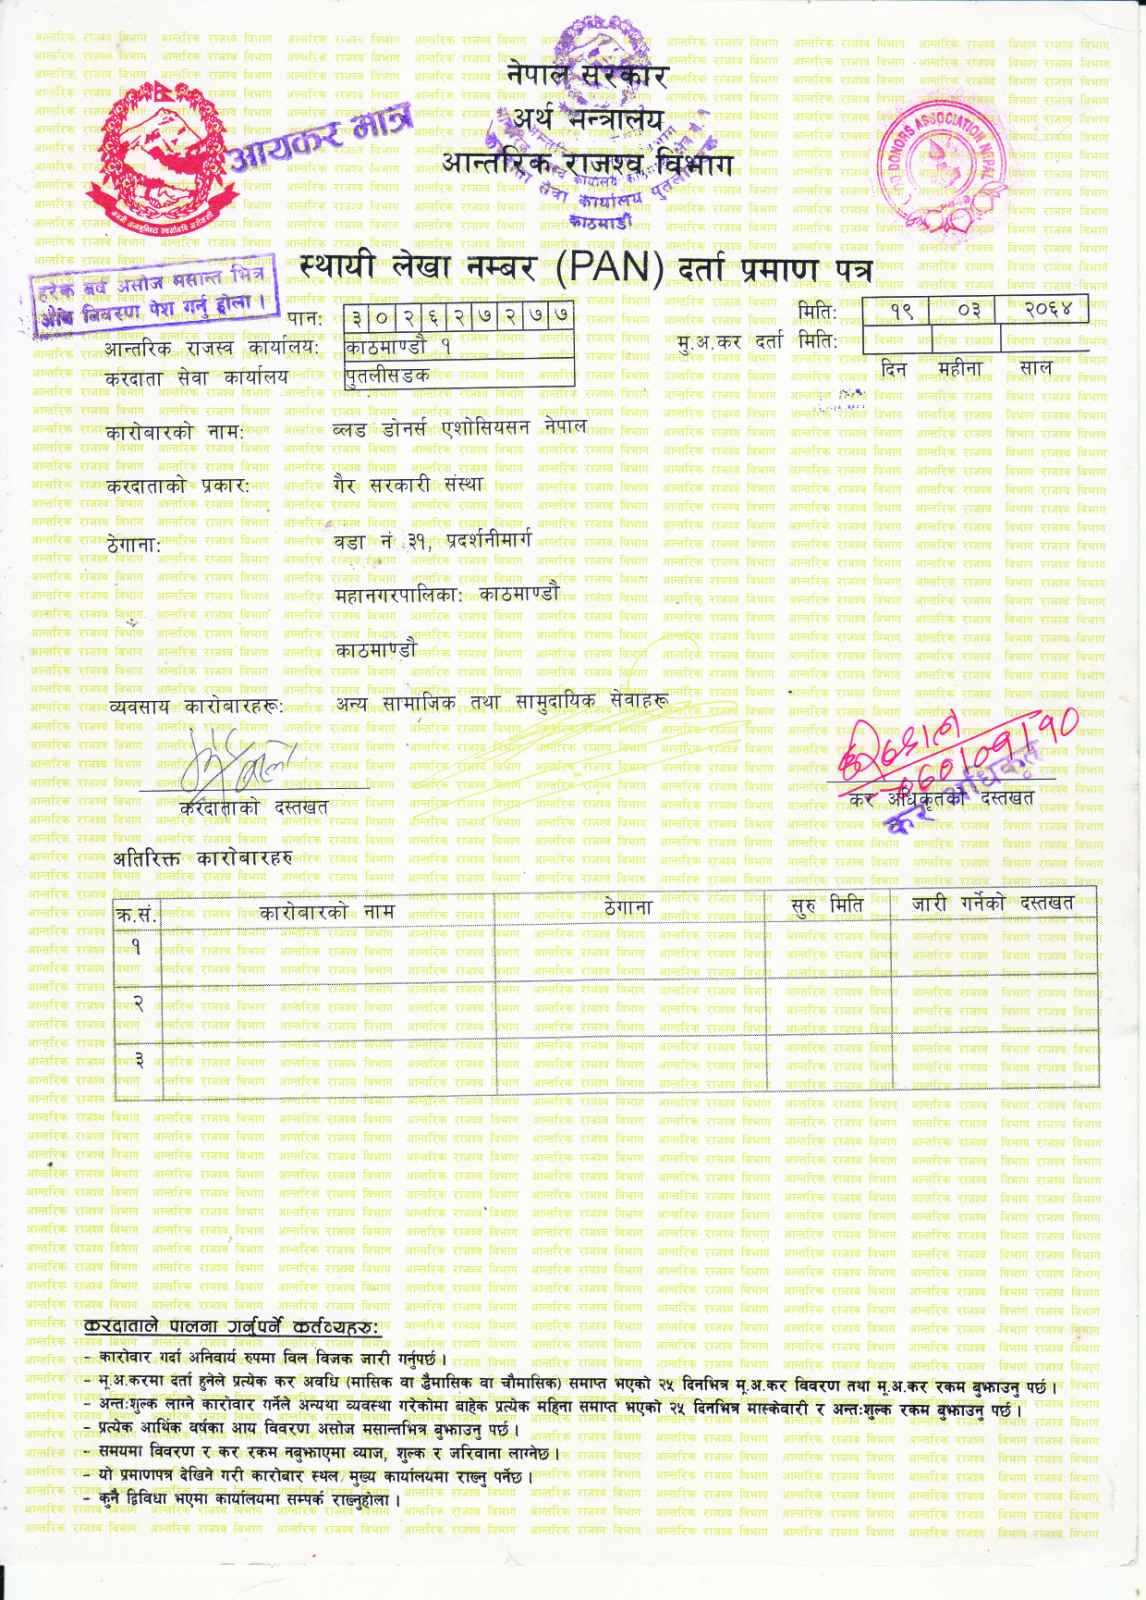 नेपाल सरकार
अर्थ मन्त्रालय
आन्तरिक राजश्व विभाग
आयकर मात्र
DONORS ASSOCIATION NEPAL
सेवा कार्यालय
काठमाडौं
स्थायी लेखा नम्बर (PAN) दर्ता प्रमाण पत्र
हरेक वर्ष असोज मसान्त भित्र
आय विवरण पेश गर्नु होला ।
पान: ३ ० २ ६ २ ७ २ ७ ७
मिति: १९ ०३ २०६४
आन्तरिक राजस्व कार्यालय: काठमाण्डौ १
मु.अ.कर दर्ता मिति:
करदाता सेवा कार्यालय पुतलीसडक
दिन महीना साल
कारोबारको नाम: ब्लड डोनर्स एशोसियसन नेपाल
करदाताको प्रकार: गैर सरकारी संस्था
ठेगाना: वडा नं ३१, प्रदर्शनीमार्ग
महानगरपालिका: काठमाण्डौ
काठमाण्डौ
व्यवसाय कारोबारहरू: अन्य सामाजिक तथा सामुदायिक सेवाहरू
करदाताको दस्तखत
कर अधिकृतको दस्तखत
कर अधिकृत
अतिरिक्त कारोबारहरु
क्र.सं. कारोबारको नाम ठेगाना सुरु मिति जारी गर्नेको दस्तखत
१
२
३
करदाताले पालना गर्नुपर्ने कर्तव्यहरु:
- कारोवार गर्दा अनिवार्य रुपमा विल विजक जारी गर्नुपर्छ ।
- मू.अ.करमा दर्ता हुनेले प्रत्येक कर अवधि (मासिक वा द्वैमासिक वा चौमासिक) समाप्त भएको २५ दिनभित्र मू.अ.कर विवरण तथा मू.अ.कर रकम बुझाउनु पर्छ ।
- अन्त:शुल्क लाग्ने कारोवार गर्नेले अन्यथा व्यवस्था गरेकोमा बाहेक प्रत्येक महिना समाप्त भएको २५ दिनभित्र मास्केवारी र अन्त:शुल्क रकम बुझाउनु पर्छ ।
- प्रत्येक आर्थिक वर्षका आय विवरण असोज मसान्तभित्र बुझाउनु पर्छ ।
- समयमा विवरण र कर रकम नबुझाएमा व्याज, शुल्क र जरिवाना लाग्नेछ ।
- यो प्रमाणपत्र देखिने गरी कारोबार स्थल मुख्य कार्यालयमा राख्नु पर्नेछ ।
- कुनै द्विविधा भएमा कार्यालयमा सम्पर्क राख्नुहोला ।